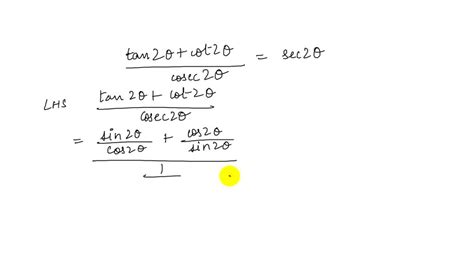 tan2θ + cot2θ / cosec2θ = sec2θ
LHS tan2θ + cot2θ / cosec2θ
= sin2θ/cos2θ + cos2θ/sin2θ / 1